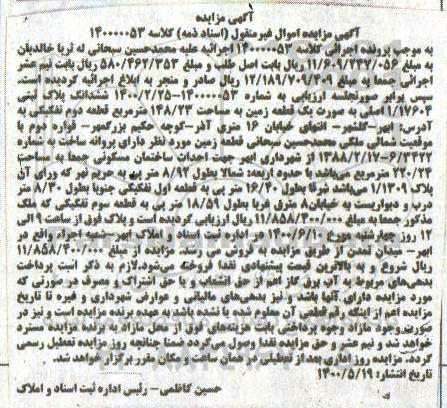 آگهی مزایده
آگهی مزایده اموال غیرمنقول (اسناد ذمه) کلاسه ۱۴۰۰۰۰۰۵۳
به موجب پرونده اجرائی کلاسه ۱۴۰۰۰۰۰۵۳ اجرائیه علیه محمدحسین سبحانی له ثریا خالدیان
به مبلغ ۱۱/۶۰۹/۲۴۷/۰۵۶ ریال بابت اصل طلب و مبلغ ۵۸۰/۴۶۲/۳۵۳ ریال بابت نیم عشر
اجرائی جمعا به مبلغ ۱۲/۱۸۹/۷۰۹/۴۰۹ ریال صادر و منجر به ابلاغ اجرائیه گردیده است.
سپس برابر صورتجلسه ارزیابی به شماره ۱۴۰۰۰۰۰۵۳-۱۴۰۰/۲/۲۵ ششدانگ پلاک ثبتی
۱/۱۷۶۰۴ اصلی به صورت یک قطعه زمین به مساحت ۱۴۸/۲۳ مترمربع قطعه دوم تفکیکی به
آدرس: ابهر-گلشهر- انتهای خیابان ۱۶ متری آذر-کوچه حکیم بزرگمهر- قواره دوم با
موقعیت شمالی ملکی محمدحسین سبحانی قطعه زمین مورد نظر دارای پروانه ساخت به شماره
۶/۳۴۲۲-۱۳۸۸/۲/۱۷ از شهرداری ابهر جهت احداث ساختمان مسکونی جمعا به مساحت
۲۲۰/۲۴ مترمربع می‌باشد با حدود اربعه: شمالا بطول ۸/۹۲ متر پی به حریم نهر که ورای آن
پلاک ۱/۱۳۰۹ می‌باشد شرقا بطول ۱۶/۴۰ متر پی به قطعه اول تفکیکی جنوبا بطول ۸/۳۰ متر
درب و دیواریست به خیابان۸ متری غربا بطول ۱۸/۵۹ متر پی به قطعه سوم تفکیکی که ملک
مذکور جمعا به مبلغ ۱۱/۸۵۸/۴۰۰/۰۰۰ ریال ارزیابی گردیده است و پلاک فوق از ساعت ۹ الی
۱۲ روز چهارشنبه مورخ ۱۴۰۰/۶/۱۰ در اداره ثبت اسناد و املاک ابهر-شعبه اجراء واقع در
ابهر- میدان تمدن از طریق مزایده به فروش می رسد. مزایده از مبلغ ۱۱/۸۵۸/۴۰۰/۰۰۰
ریال شروع و به بالاترین قیمت پیشنهادی نقدا فروخته می‌شود.لازم به ذکر است پرداخت
بدهی‌های مربوط به آب برق گاز اعم از حق انشعاب و یا حق اشتراک و مصرف در صورتی که
مورد مزایده دارای آنها باشد و نیز بدهی‌های مالیاتی و عوارض شهرداری و غیره تا تاریخ
مزایده اعم از اینکه رقم قطعی آن معلوم شده یا نشده باشد به عهده برنده مزایده است و نیز در
صورت وجود مازاد وجوه پرداختی بابت هزینه‌های فوق از محل مازاد به برنده مزایده مسترد
خواهد شد و نیم عشر و حق مزایده نقدا وصول می‌گردد ضمنا چنانچه روز مزایده تعطیل رسمی
گردد، مزایده روز اداری بعد از تعطیلی در همان ساعت و مکان مقرر برگزار خواهد شد.
تاریخ انتشار: ۱۴۰۰/۵/۱۹
حسین کاظمی- رئیس اداره ثبت اسناد و املاک